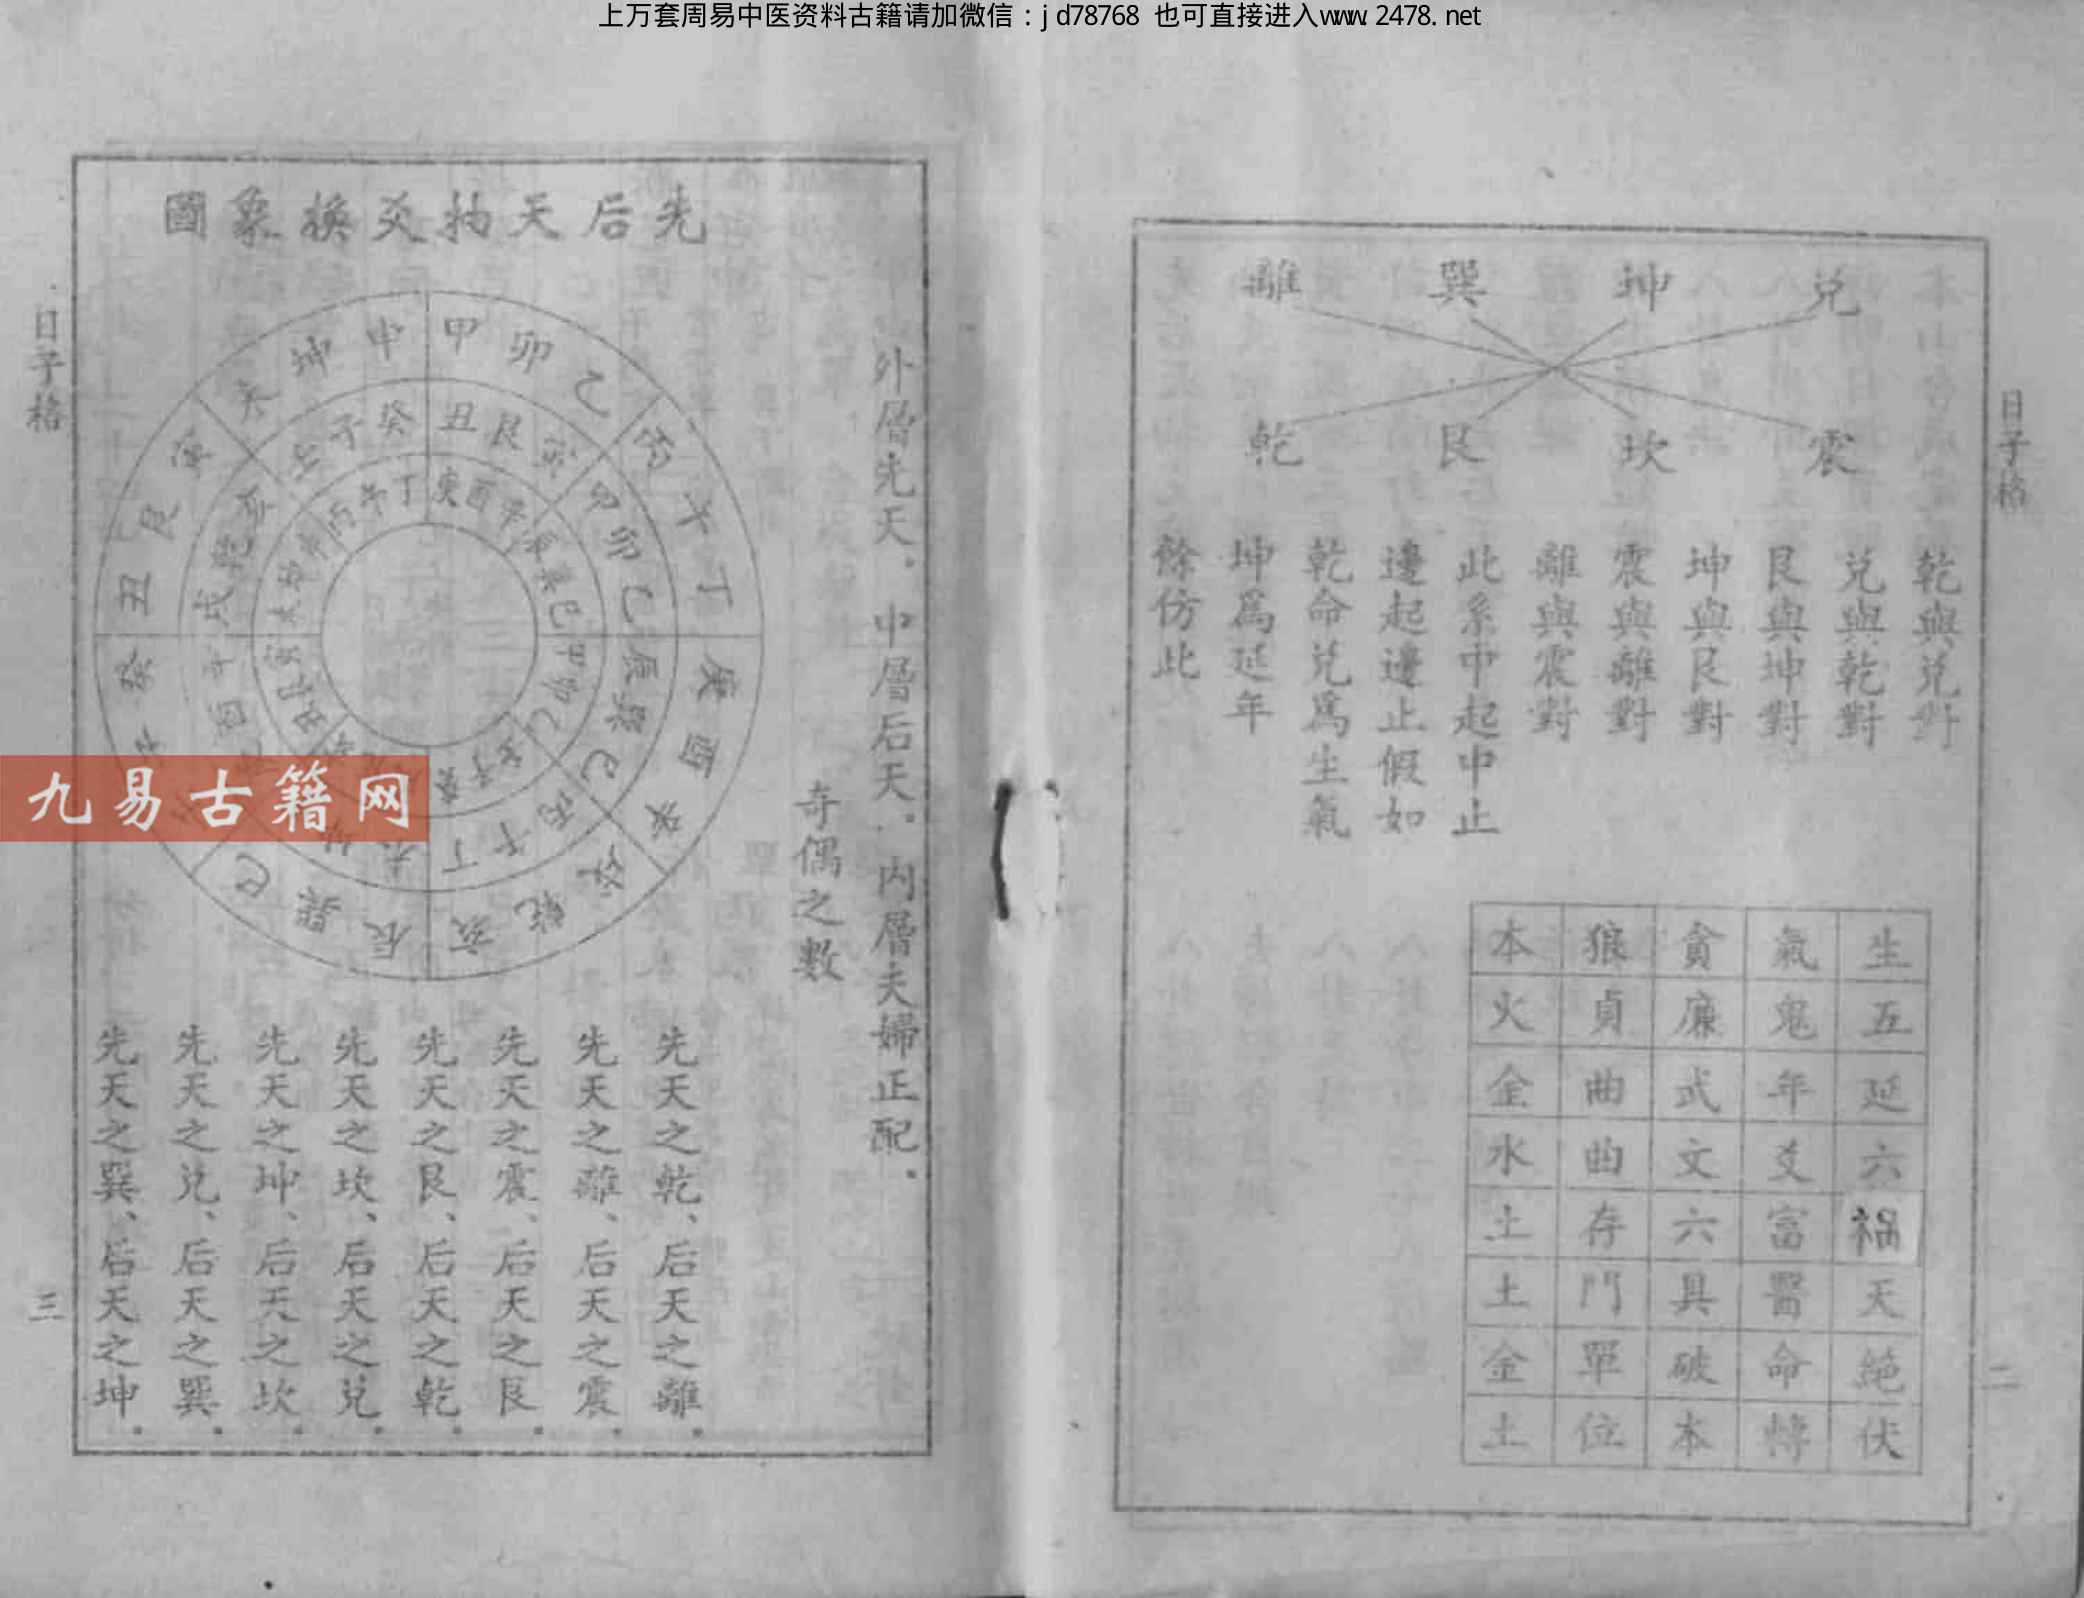 上万套周易中医资料古籍请加微信：jd78768 也可直接进入www.2478.net
日子格
二
兌 坤 巽 離
震 坎 艮 乾
乾與兌對
兌與乾對
艮與坤對
坤與艮對
震與離對
離與震對
此系中起中止
邊起邊止假如
乾命兌爲生氣
坤爲延年
餘仿此
生氣貪狼本
五鬼廉貞火
延年武曲金
六爻文曲水
祸富六存土
天醫具門土
絶命破單金
伏轉本位土
先后天抅爻換象圖
外層先天．中層后天．内層夫婦正配．
奇偶之數
甲卯乙
午丁
庚酉
乾亥
辰巽巳
癸
丑艮
坤申
丑艮寅
卯巳
辰巽巳
丙午丁
酉辛
子癸
庚酉辛
丙午丁
先天之乾、后天之離．
先天之離、后天之震．
先天之震、后天之艮．
先天之艮、后天之乾．
先天之坎、后天之兌．
先天之坤、后天之坎．
先天之兌、后天之巽．
先天之巽、后天之坤．
日子格
三
九易古籍网